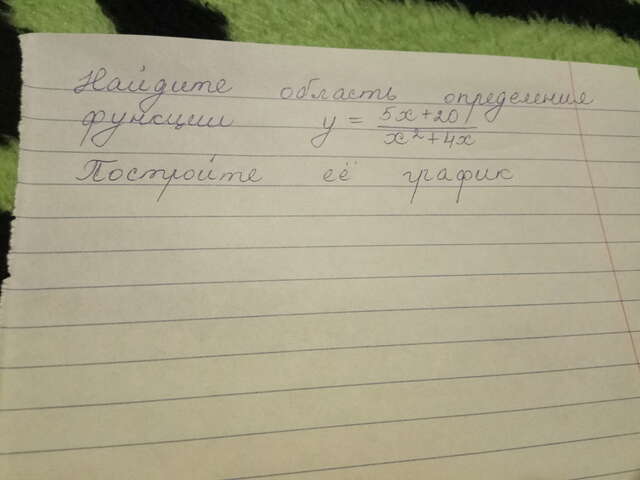 Найдите область определения
функции y = \frac{5x+20}{x^2+4x}
Постройте её график